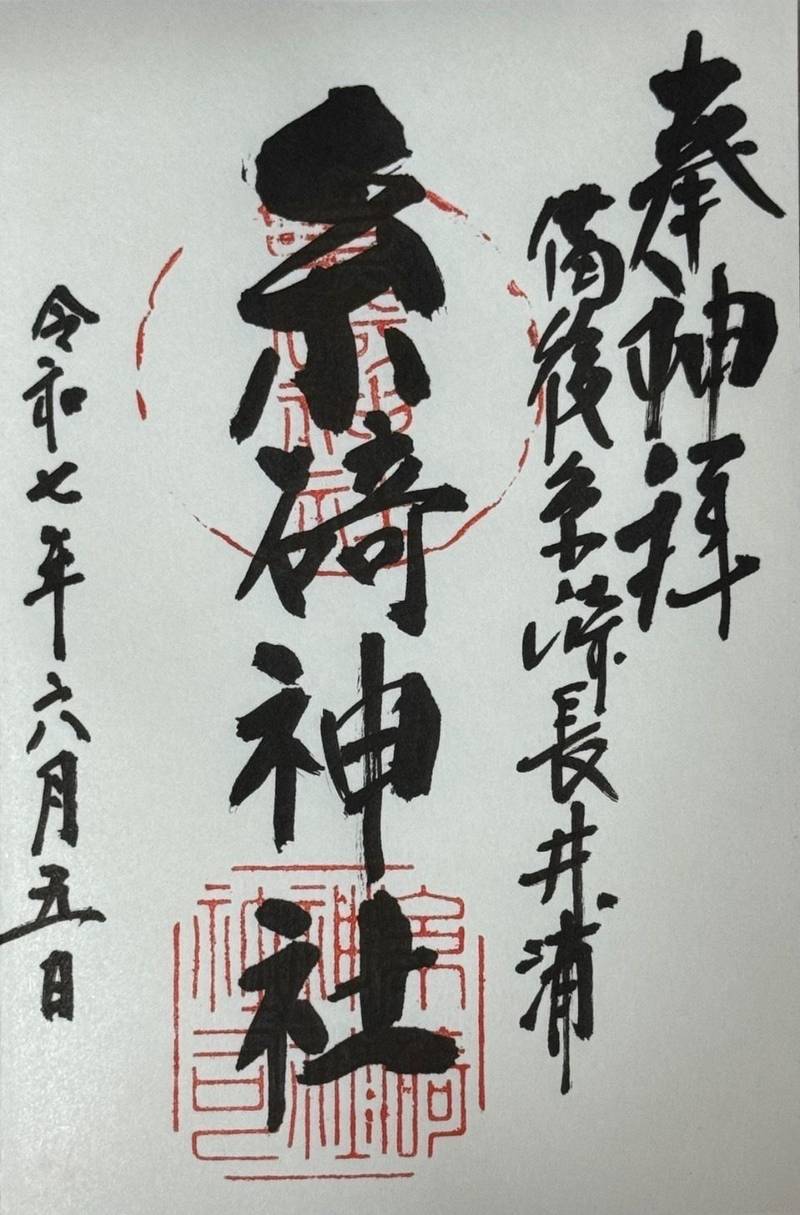 奉神拝
備後長井浦
糸碕神社
令和七年六月五日